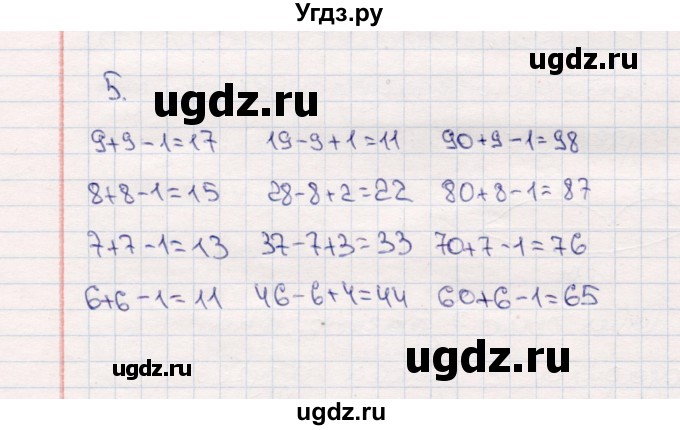 Угдз.ру
5.
ugdz.ru
ugdz.ru
9+9-1=17 19-9+1=11 90+9-1=98
8+8-1=15 28-8+2=22 80+8-1=87
7+7-1=13 37-7+3=33 70+7-1=76
6+6-1=11 46-6+4=44 60+6-1=65
ugdz.ru
ugdz.ru
ugdz.ru